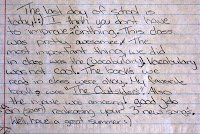 The last day of school is
today! :) I think you don't have
to improve enithing. This class
was pretty awesome! The
most important thing we did
in class was the (vocabulary). Vocabulary
was not cool. The books we
read in class were okay. My favorite
book was "The Outsiders". Also
the movie was amazing! good job
on reviewing your 3 new songs.
Well have a great summer! :)